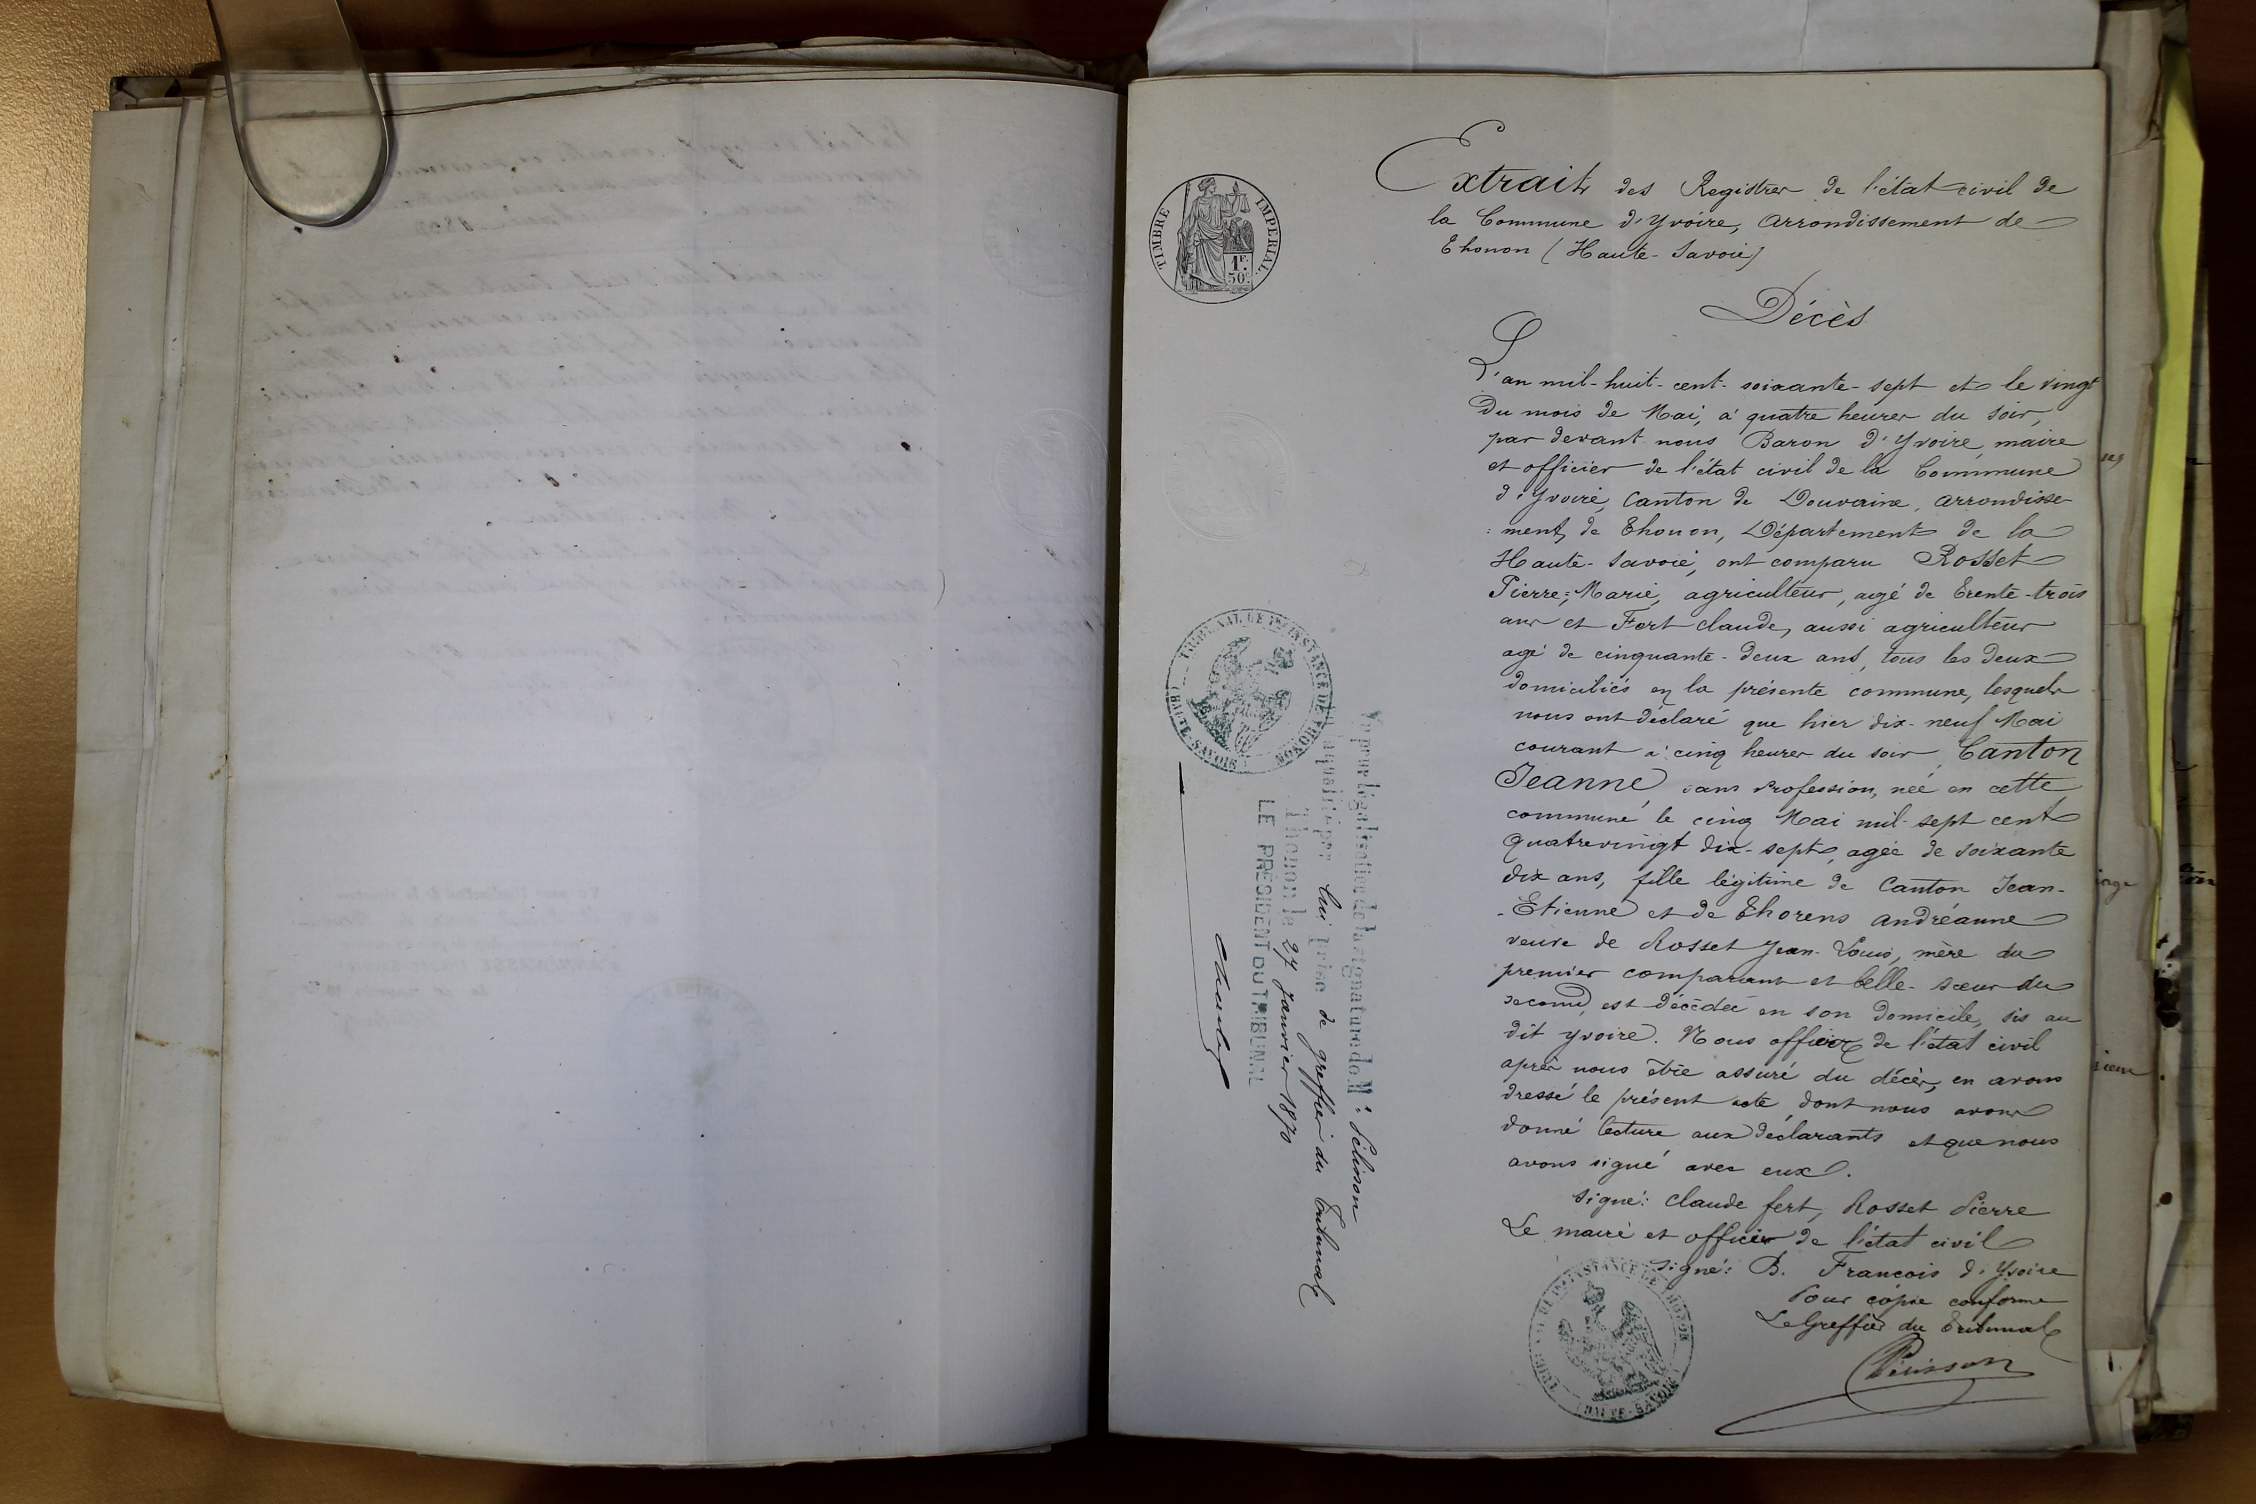 Extrait des Registres de l'état civil de
la Commune d'Yvoire, arrondissement de
Thonon (Haute-Savoie)
Décès
TIMBRE IMPERIAL
1F.
50c
L'an mil-huit-cent-soixante-sept et le vingt
Du mois de Mai, à quatre heures du soir,
par devant nous Baron d'Yvoire, maire
et officier de l'état civil de la Commune
d'Yvoire, Canton de Douvaine, arrondisse-
:ment, de Thonon, Département de la
Haute-Savoie, ont comparu Rosset
Pierre-Marie, agriculteur, agé de trente-trois
ans et Fert Claude, aussi agriculteur
agé de cinquante-deux ans, tous les deux
domiciliés en la présente commune, lesquels
nous ont déclaré que hier dix-neuf Mai
courant à cinq heures du soir, Canton
Jeanne, sans profession, née en cette
commune le cinq Mai mil-sept cent
quatrevingt dix-sept, agée de soixante
dix ans, fille légitime de Canton Jean-
-Etienne et de Thorens andréanne
veuve de Rosset Jean-Louis, mère du
premier comparant et belle-sœur du
second, est décédée en son domicile, sis au
dit yvoire. Nous officier de l'état civil
après nous être assuré du décès, en avons
dressé le présent acte, dont nous avons
donné lecture aux déclarants et que nous
avons signé avec eux.
Signé: Claude fert, Rosset Pierre
Le maire et officier de l'état civil
Signé: B. François d'Yvoire
Pour copie conforme
Le Greffier du Tribunal
TRIBUNAL DE 1RE INSTANCE DE THONON
(HAUTE-SAVOIE)
Vu pour légalisation de la signature de M:
apposée par lui prise de greffier du Tribunal
Thonon le 27 Janvier 1870
LE PRÉSIDENT DU TRIBUNAL
TRIBUNAL DE 1RE INSTANCE DE THONON
(HAUTE-SAVOIE)